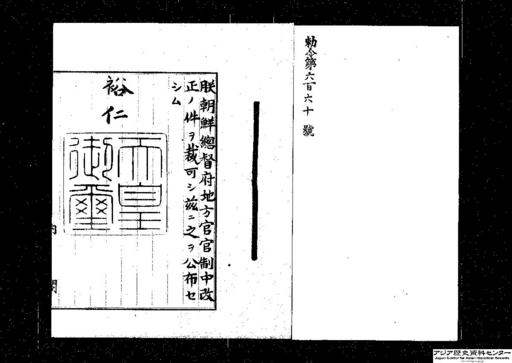 勅令第六百六十號
朕朝鮮總督府地方官官制中改
正ノ件ヲ裁可シ茲ニ之ヲ公布セ
シム
裕仁
天皇
御璽
内閣
アジア歴史資料センター
Japan Center for Asian Historical Records